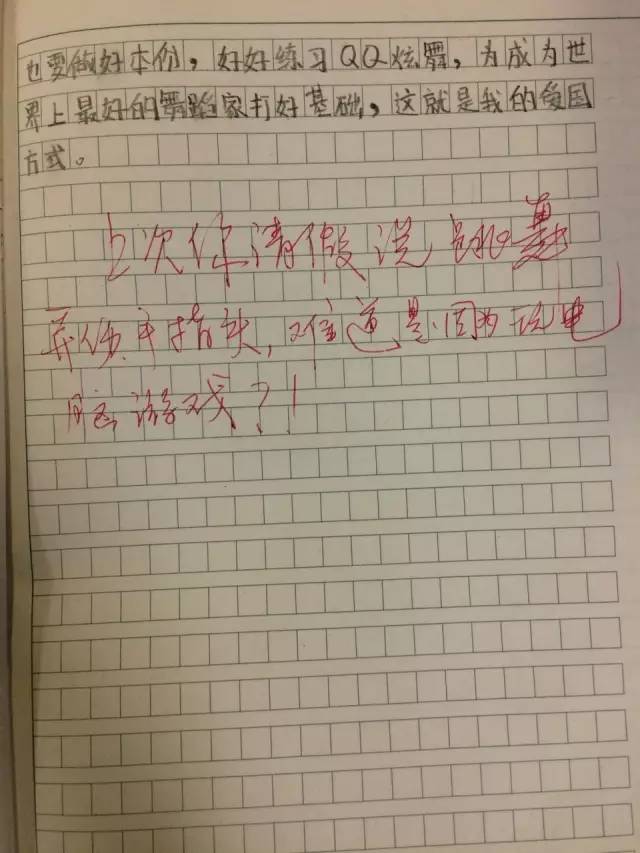 也要做好本份，好好练习QQ炫舞，为成为世
界上最好的舞蹈家打好基础，这就是我的爱国
方式。
上次你请假说跳舞
弄伤手指头，难道是因为玩电
脑游戏？！